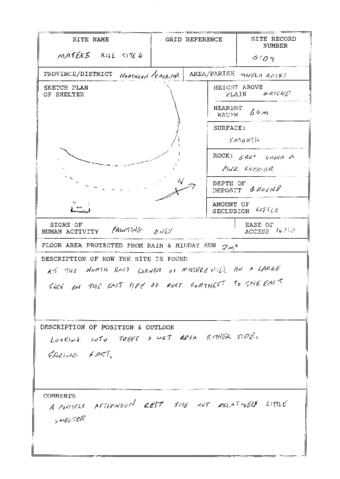 SITE NAME
GRID REFERENCE
SITE RECORD NUMBER
HILL SITE 4
PROVINCE/DISTRICT NORTHERN /
AREA/PARISH ROCKS
SKETCH PLAN OF SHELTER
HEIGHT ABOVE PLAIN GROUND
NEAREST WATER 60m
SURFACE:
SMOOTH
ROCK: GREY UNDER A
PINK EXTERIOR
DEPTH OF DEPOSIT GROUND
AMOUNT OF SECLUSION LITTLE
N
SIGNS OF HUMAN ACTIVITY PAINTING ONLY
EASE OF ACCESS
FLOOR AREA PROTECTED FROM RAIN & MIDDAY SUN 2m²
DESCRIPTION OF HOW THE SITE IS FOUND
AT THE NORTH EAST CORNER OF HILL ON A LARGE
FACE ON THE EAST SIDE OF ROCK FURTHEST TO THE EAST
DESCRIPTION OF POSITION & OUTLOOK
LOOKING INTO TREES & WET AREA EITHER SIDE.
FACING EAST.
COMMENTS
A POSSIBLE AFTERNOON REST SITE BUT RELATIVELY LITTLE
SHELTER